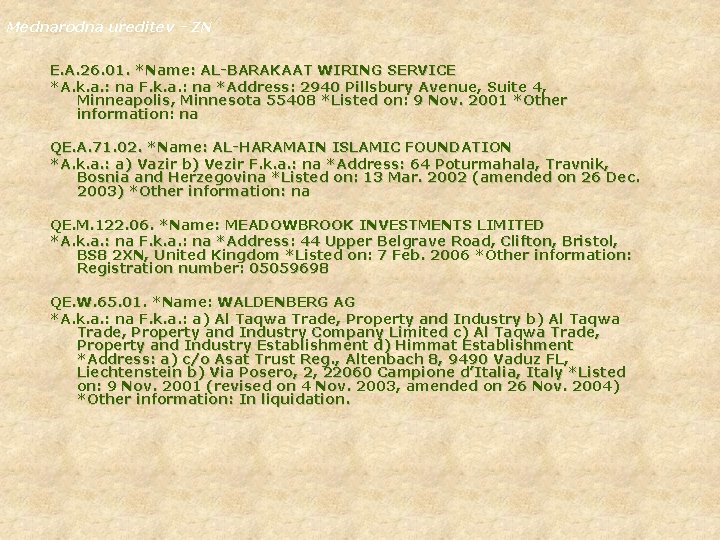 Mednarodna ureditev – ZN
E.A.26.01. *Name: AL-BARAKAAT WIRING SERVICE
*A.k.a.: na F.k.a.: na *Address: 2940 Pillsbury Avenue, Suite 4,
Minneapolis, Minnesota 55408 *Listed on: 9 Nov. 2001 *Other
information: na
QE.A.71.02. *Name: AL-HARAMAIN ISLAMIC FOUNDATION
*A.k.a.: a) Vazir b) Vezir F.k.a.: na *Address: 64 Poturmahala, Travnik,
Bosnia and Herzegovina *Listed on: 13 Mar. 2002 (amended on 26 Dec.
2003) *Other information: na
QE.M.122.06. *Name: MEADOWBROOK INVESTMENTS LIMITED
*A.k.a.: na F.k.a.: na *Address: 44 Upper Belgrave Road, Clifton, Bristol,
BS8 2XN, United Kingdom *Listed on: 7 Feb. 2006 *Other information:
Registration number: 05059698
QE.W.65.01. *Name: WALDENBERG AG
*A.k.a.: na F.k.a.: a) Al Taqwa Trade, Property and Industry b) Al Taqwa
Trade, Property and Industry Company Limited c) Al Taqwa Trade,
Property and Industry Establishment d) Himmat Establishment
*Address: a) c/o Asat Trust Reg., Altenbach 8, 9490 Vaduz FL,
Liechtenstein b) Via Posero, 2, 22060 Campione d’Italia, Italy *Listed
on: 9 Nov. 2001 (revised on 4 Nov. 2003, amended on 26 Nov. 2004)
*Other information: In liquidation.